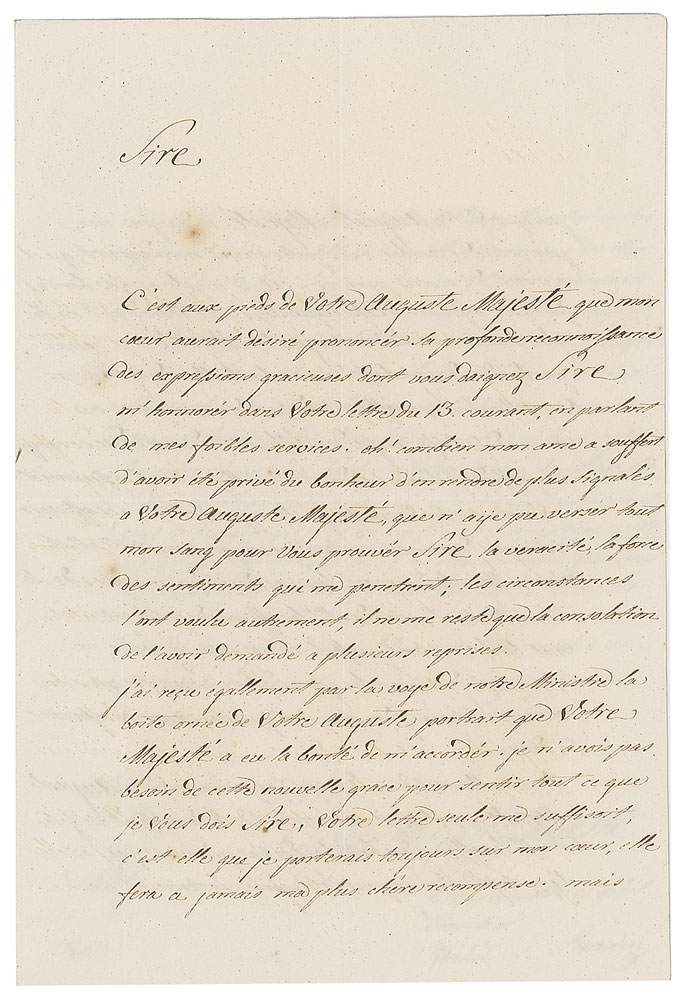 Sire
C'est aux pieds de Votre Auguste Majesté que mon
cœur aurait désiré prononcér sa profonde reconnoissance
des expressions gracieuses dont vous daignez Sire
m'honnorér dans Votre lettre du 13. courant, en parlant
de mes foibles services. oh! combien mon ame a souffert
d'avoir été privé du bonheur d'en rendre de plus signalés
a Votre Auguste Majesté, que n'aije pu verser tout
mon sang pour Vous prouvér Sire la veracité, la force
des sentiments qui me penetrent; les circonstances
l'ont voulu autrement, il ne me reste que la consolation
de l'avoir demandé a plusieurs reprises.
j'ai reçu égallement par la voye de notre Ministre la
boite ornée de Votre Auguste portrait que Votre
Majesté a eu la bonté de m'accordér. je n'avois pas
besoin de cette nouvelle grace pour sentir tout ce que
je Vous dois Sire, Votre lettre seule me suffisoit,
c'est elle que je porterais toujours sur mon cœur, elle
fera a jamais ma plus chére recompense. mais